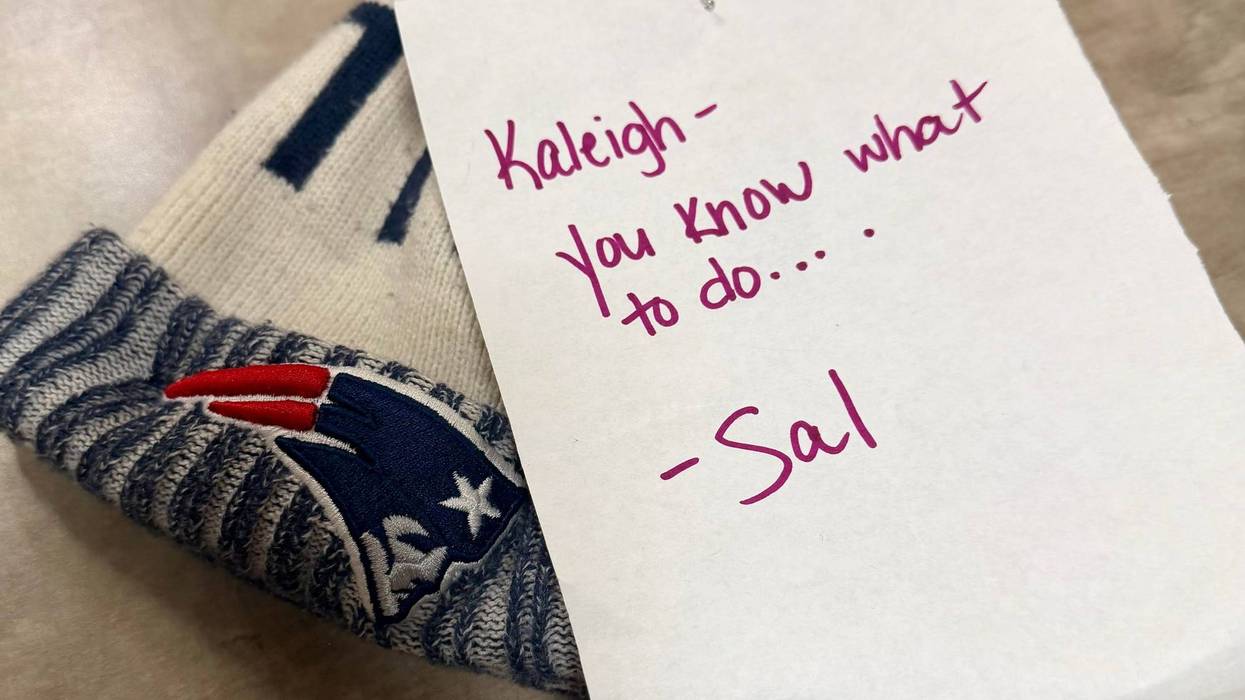 Kaleigh -
You know what
to do... .
- Sal